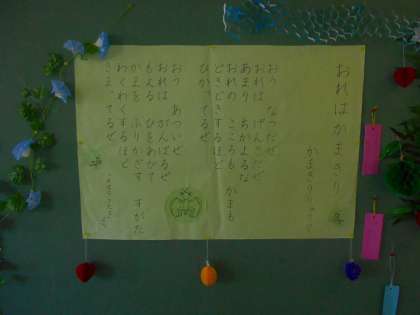 おれはかまきり
かまきりりゅうじ
おう　なつだぜ
おれは　げんきだぜ
あまり　ちかよるな
おれの　こころも　かまも
どきどきするほど
ひかってるぜ
おう　あついぜ
おれは　がんばるぜ
もえる　ひをあびて
かまを　ふりかざす　すがた
わくわくするほど
きまってるぜ